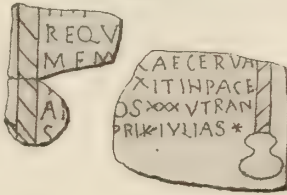 REQV
MEM
A
S
XAECERVA
XITINPACE
OS XXX VTRAN
PRIK IVLIAS *